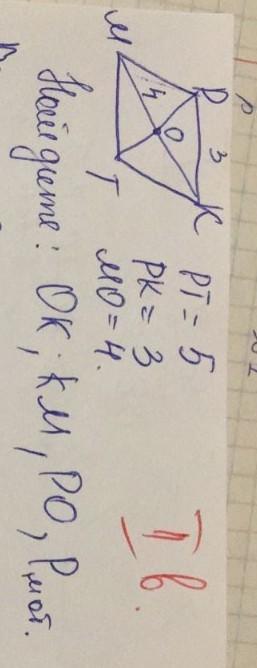 M
P
4
O
3
T
K
PT = 5
PK = 3
MO = 4.
Найдите: OK, KM, PO, Pмот.
I в.